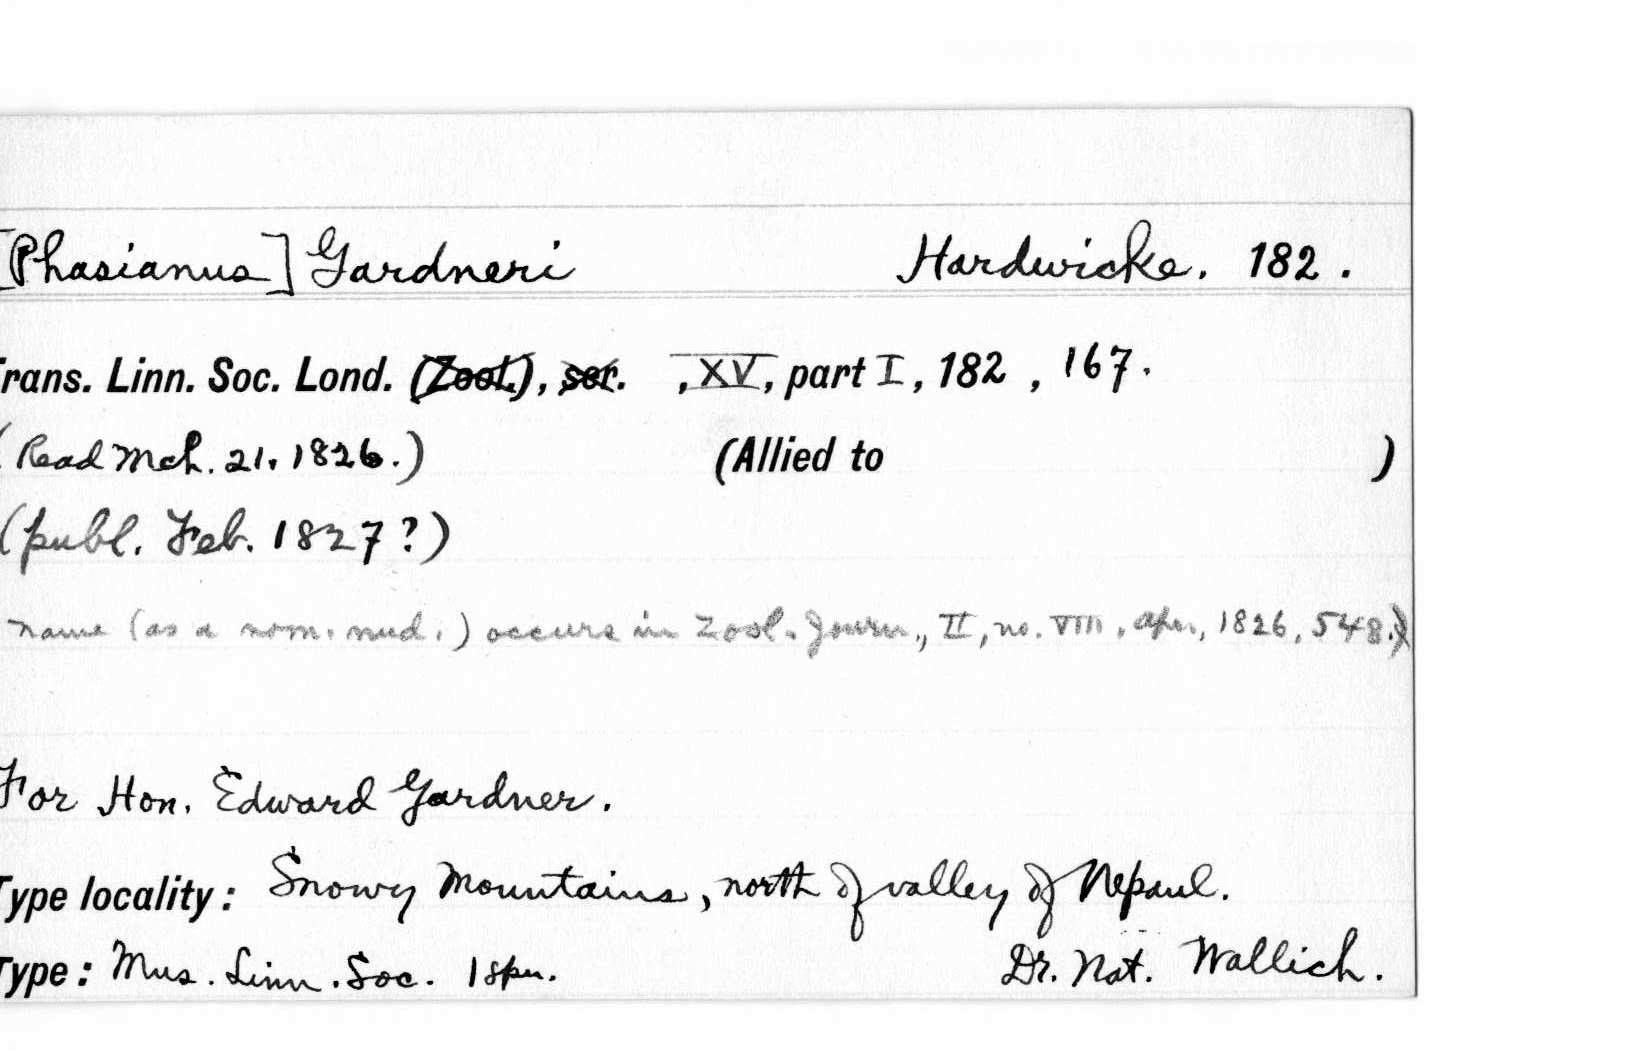 [Phasianus] Gardneri Hardwicke. 182 .
Trans. Linn. Soc. Lond. (Zool.), ser. , XV, part I, 182 , 167.
(Read Mch. 21, 1826.) (Allied to )
(publ. Feb. 1827?)
name (as a nom. nud.) occurs in Zool. Journ., II, no. VIII, Apr., 1826, 548.)
For Hon. Edward Gardner.
Type locality: Snowy Mountains, north of valley of Nepaul.
Type: Mus. Linn. Soc. 1 spn. Dr. Nat. Wallich.